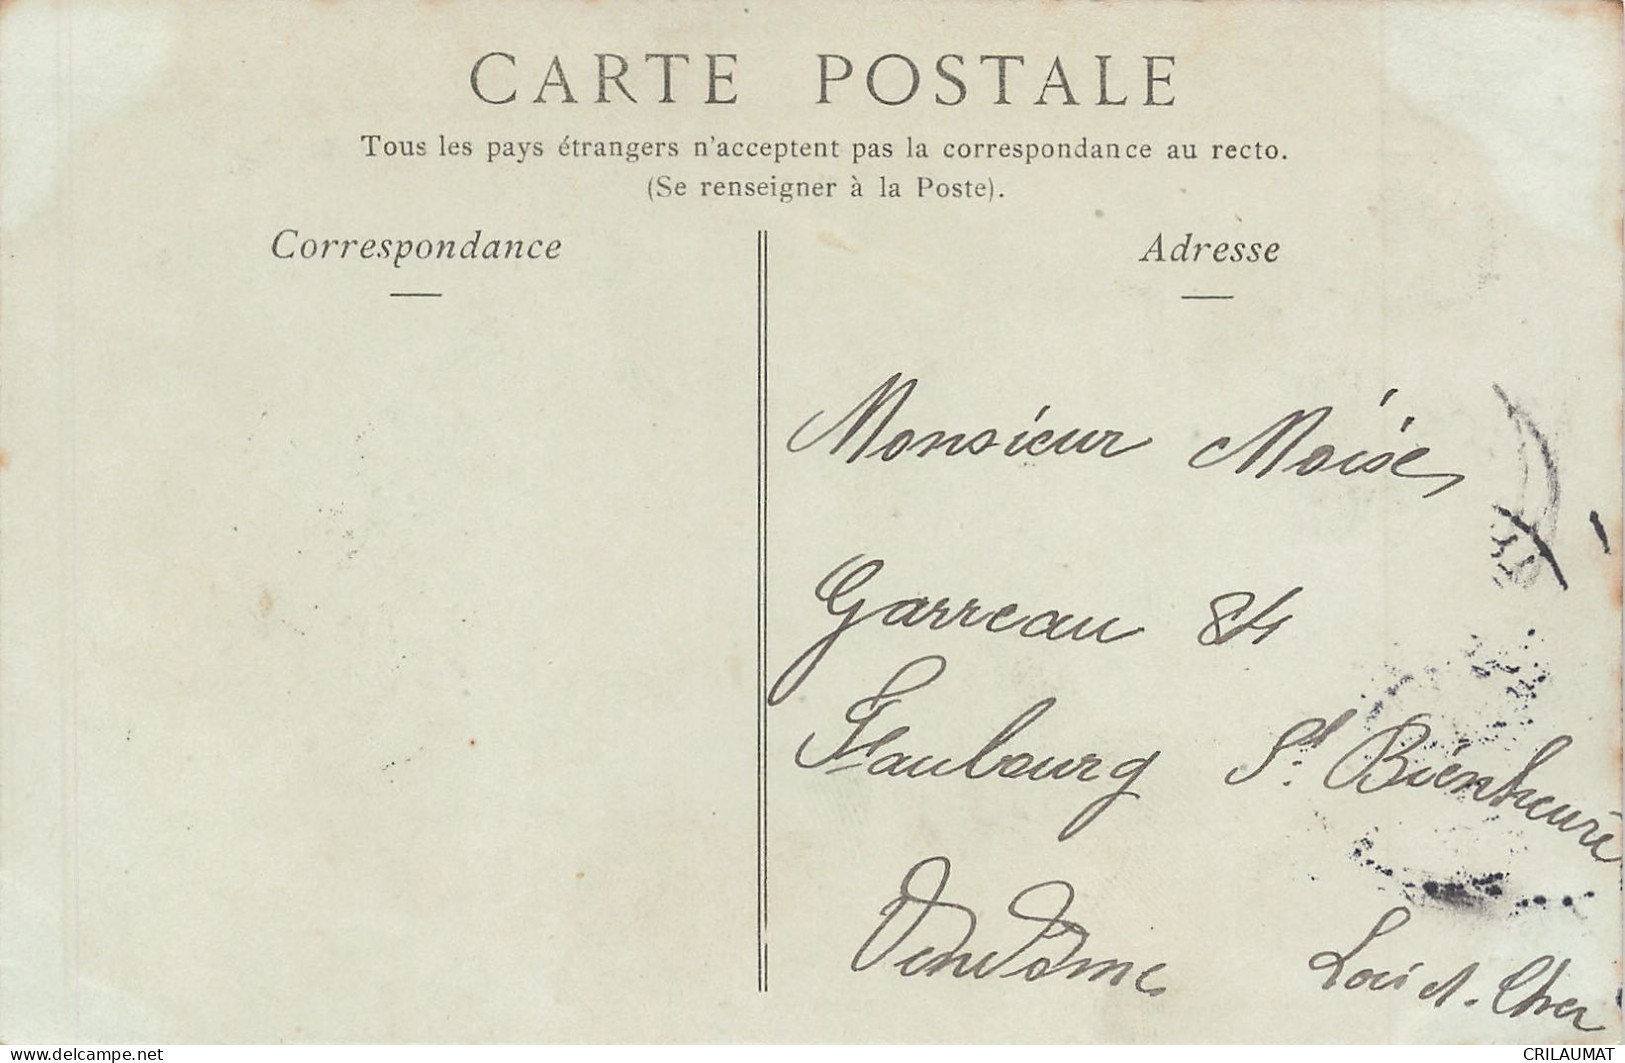 CARTE POSTALE
Tous les pays étrangers n'acceptent pas la correspondance au recto.
(Se renseigner à la Poste).
Correspondance
Adresse
Monsieur Moïse
Garreau 84
Faubourg St. Bienheuré
Vendôme Loir et-Cher
www.delcampe.net
CRILAUMAT